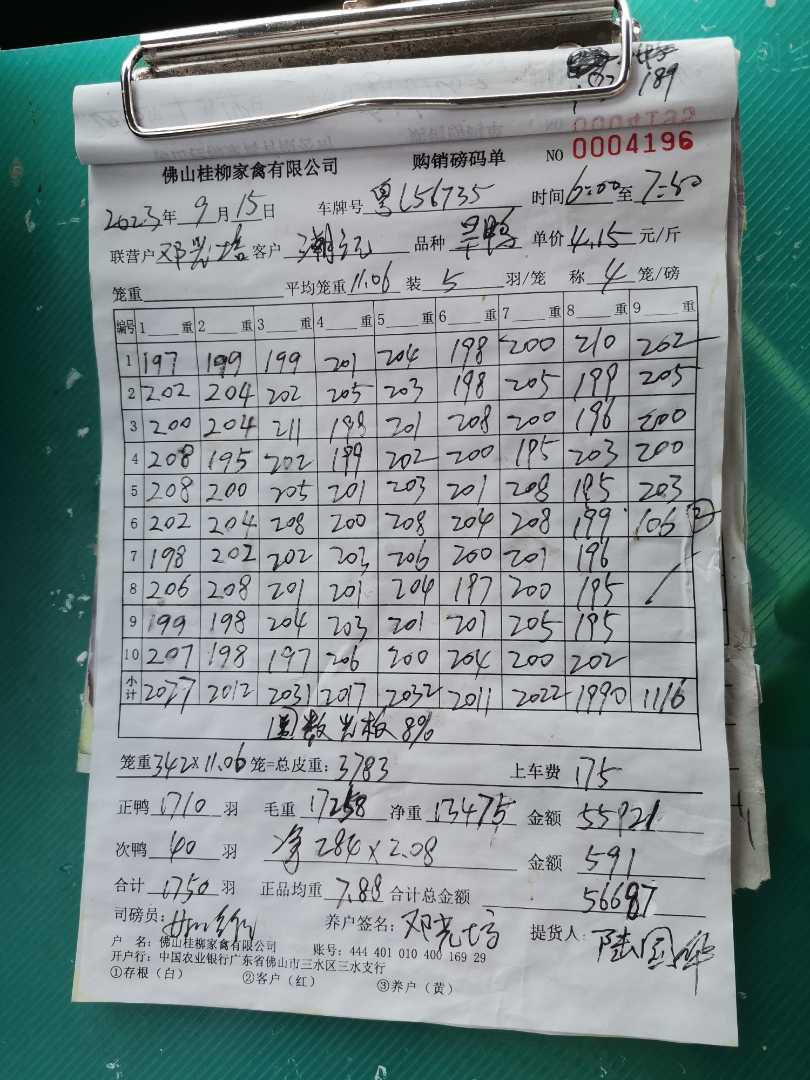 189
佛山桂柳家禽有限公司 购销磅码单 NO 0004196
2023年 9 月 15 日 车牌号 粤L56735 时间 6:00 至 7:50
联营户 邓光培 客户 潮记 品种 旱鸭 单价 4.15 元/斤
笼重 平均笼重 11.06 装 5 羽/笼 称 4 笼/磅
编号 1 重 2 重 3 重 4 重 5 重 6 重 7 重 8 重 9 重
1 197 199 199 201 204 198 200 210 202
2 202 204 202 205 203 198 205 199 205
3 200 204 211 198 201 208 200 196 200
4 208 195 202 199 202 200 195 203 200
5 208 200 205 201 203 201 208 195 203
6 202 204 208 200 208 204 208 199 106 ②
7 198 202 202 203 206 200 201 196
8 206 208 201 201 204 197 200 195
9 199 198 204 203 201 201 205 195
10 207 198 197 206 200 204 200 202
小计 2027 2012 2031 2017 2032 2011 2022 1990 1116
8%
笼重 342×11.06 笼=总皮重: 3783 上车费 175
正鸭 1710 羽 毛重 17258 净重 13475 金额 55921
次鸭 40 羽 净 284×2.08 金额 591
合计 1750 羽 正品均重 7.88 合计总金额 56687
司磅员: 养户签名: 邓光培 提货人: 陆国华
户 名: 佛山桂柳家禽有限公司 账号: 444 401 010 400 169 29
开户行: 中国农业银行广东省佛山市三水区三水支行
①存根(白) ②客户(红) ③养户(黄)